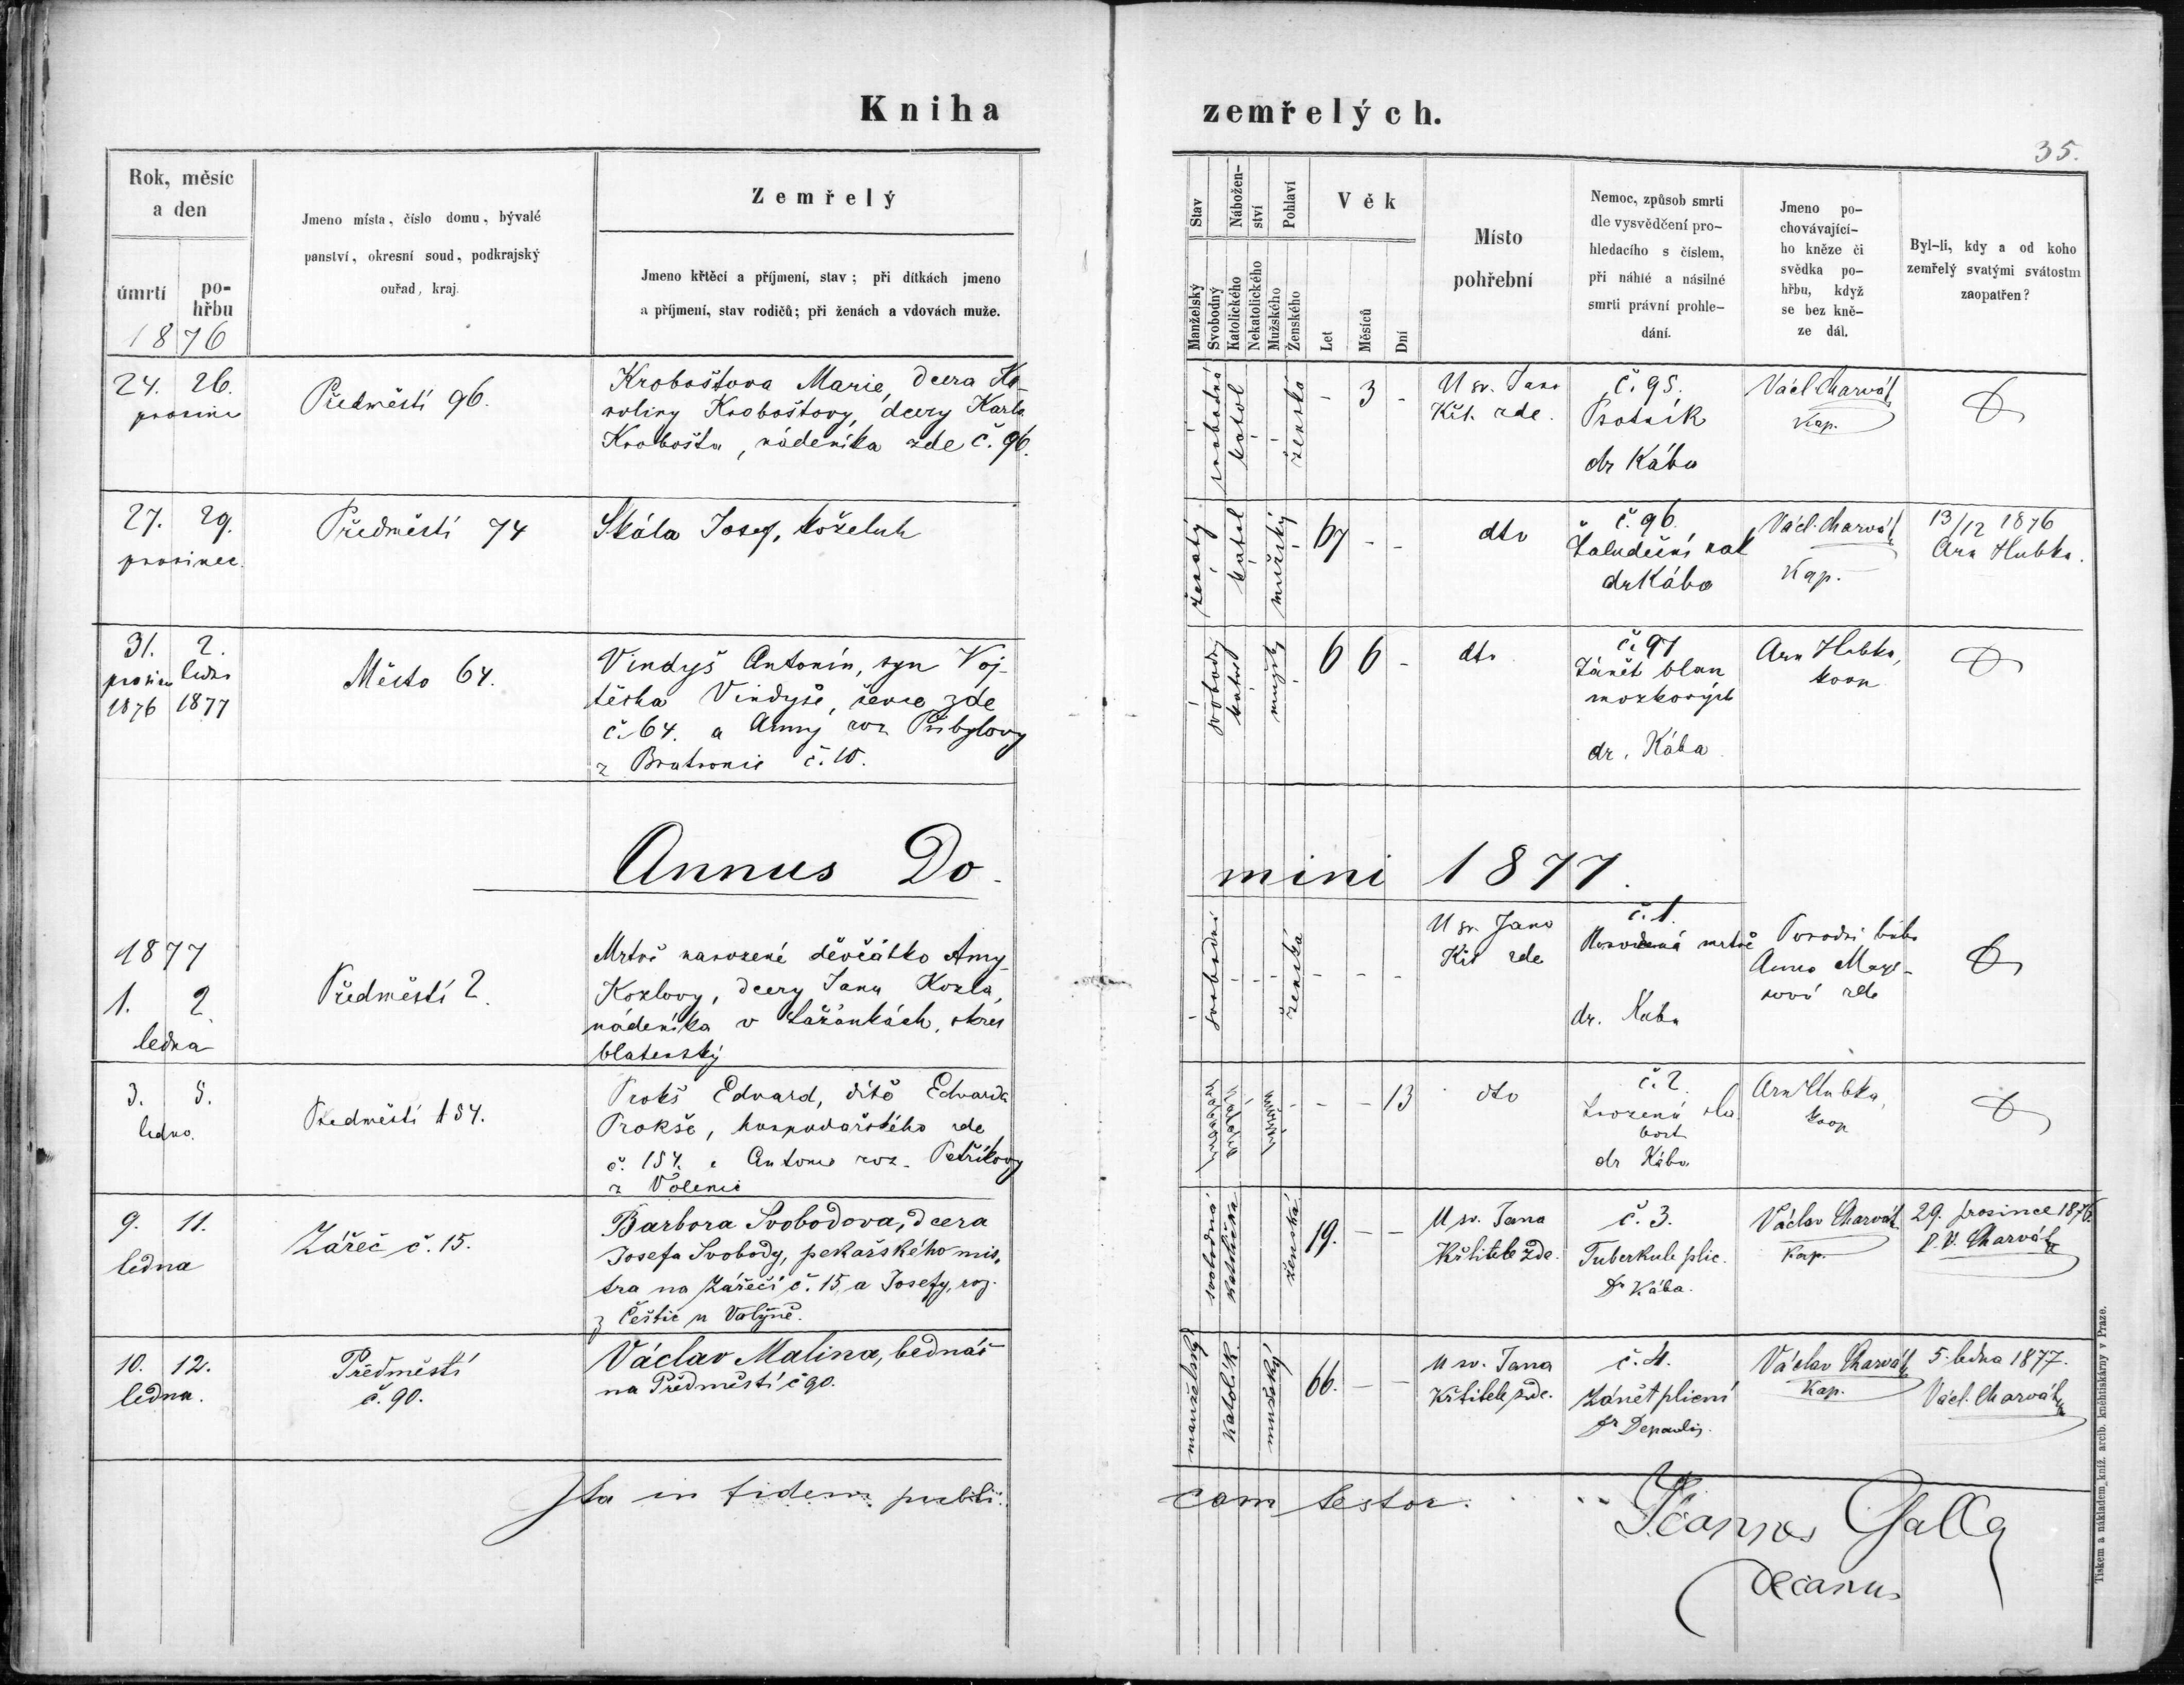 Kniha zemřelých.
35.
Rok, měsíc a den
úmrtí
po-hřbu
1876
Jmeno místa, číslo domu, bývalé
panství, okresní soud, podkrajský
ouřad, kraj.
Zemřelý
Jmeno křtěcí a příjmení, stav; při dítkách jmeno
a příjmení, stav rodičů; při ženách a vdovách muže.
Stav
Manželský
Svobodný
Nábožen-ství
Katolického
Nekatolického
Pohlaví
Mužského
Ženského
Věk
Let
Měsíců
Dní
Místo
pohřební
Nemoc, způsob smrti
dle vysvědčení pro-
hledacího s číslem,
při náhlé a násilné
smrti právní prohle-
dání.
Jmeno po-
chovávající-
ho kněze či
svědka po-
hřbu, když
se bez kně-
ze dál.
Byl-li, kdy a od koho
zemřelý svatými svátostmi
zaopatřen?
24. 26.
prosince
Předměstí 96.
Kroboštova Marie, dcera Ka-
roliny Kroboštovy, dcery Karla
Krobošta, nádeníka zde č. 96.
svobodná
katol
ženská
- 3 -
U sv. Jana
Křt. zde.
č. 95.
Psotník
dr Kába
Václ Charvát
Kap.
27. 29.
prosinec.
Předměstí 74
Skála Josef, koželuh
ženatý
katol
mužský
67 - -
dto
č. 96.
Žaludeční rak
dr Kába
Václ. Charvát
Kap.
13/12 1876
Arn Hubka.
31. 2.
prosince ledna
1876 1877
Město 64.
Vindyš Antonín, syn Voj-
těcha Vindyše, ševce zde
č. 64. a Anny roz Přibylovy
z Bratronic č. 10.
svobodný
katol
mužský
6 6 -
dto
č. 97
Zánět blan
mozkových
dr. Kába
Arn Hubka,
koop
Annus Do-
mini 1877.
1877
1. 2.
ledna
Předměstí 2.
Mrtvě narozené děvčátko Anny
Kozlovy, dcery Jana Kozla,
nádeníka v Lažánkách, okres
blatenský
svobodná
- -
ženská
- - -
U sv. Jana
Křt zde
č. 1.
Narozená mrtvě
dr. Kába
Porodní bába
Anna
zde
3. 5.
ledna.
Předměstí 154.
Prokš Edvard, dítě Edvarda
Prokše, hospodářského zde
č. 154. a Antonie roz. Petříkovy
z Volenic
- - 13
dto
č. 2.
Vrozená sla
bost
dr Kába
Arn Hubka,
koop
9. 11.
ledna
Zářeč č. 15.
Barbora Svobodova, dcera
Josefa Svobody, pekařského mis-
tra na Zářečí č. 15, a Josefy, roz.
z Čestic u Volyně.
svobodná
katolička
ženská
19. - -
U sv. Jana
Křtitele zde.
č. 3.
Tuberkule plic.
Dr Kába.
Václav Charvát
Kap.
29. prosince 1876.
P. V. Charvát
10. 12.
ledna.
Předměstí
č. 90.
Václav Malina, bednář
na Předměstí č 90.
manželský
katolík
mužský
66. - -
U sv. Jana
Křtitele zde.
č. 4.
Zánět plicní
Dr Depaulis.
Václav Charvát
Kap.
5. ledna 1877.
Václ. Charvát
Ita in fidem publi-
cam testor.
Joannes Galla
decanus
Tiskem a nákladem kníž. arcib. kněhtiskárny v Praze.